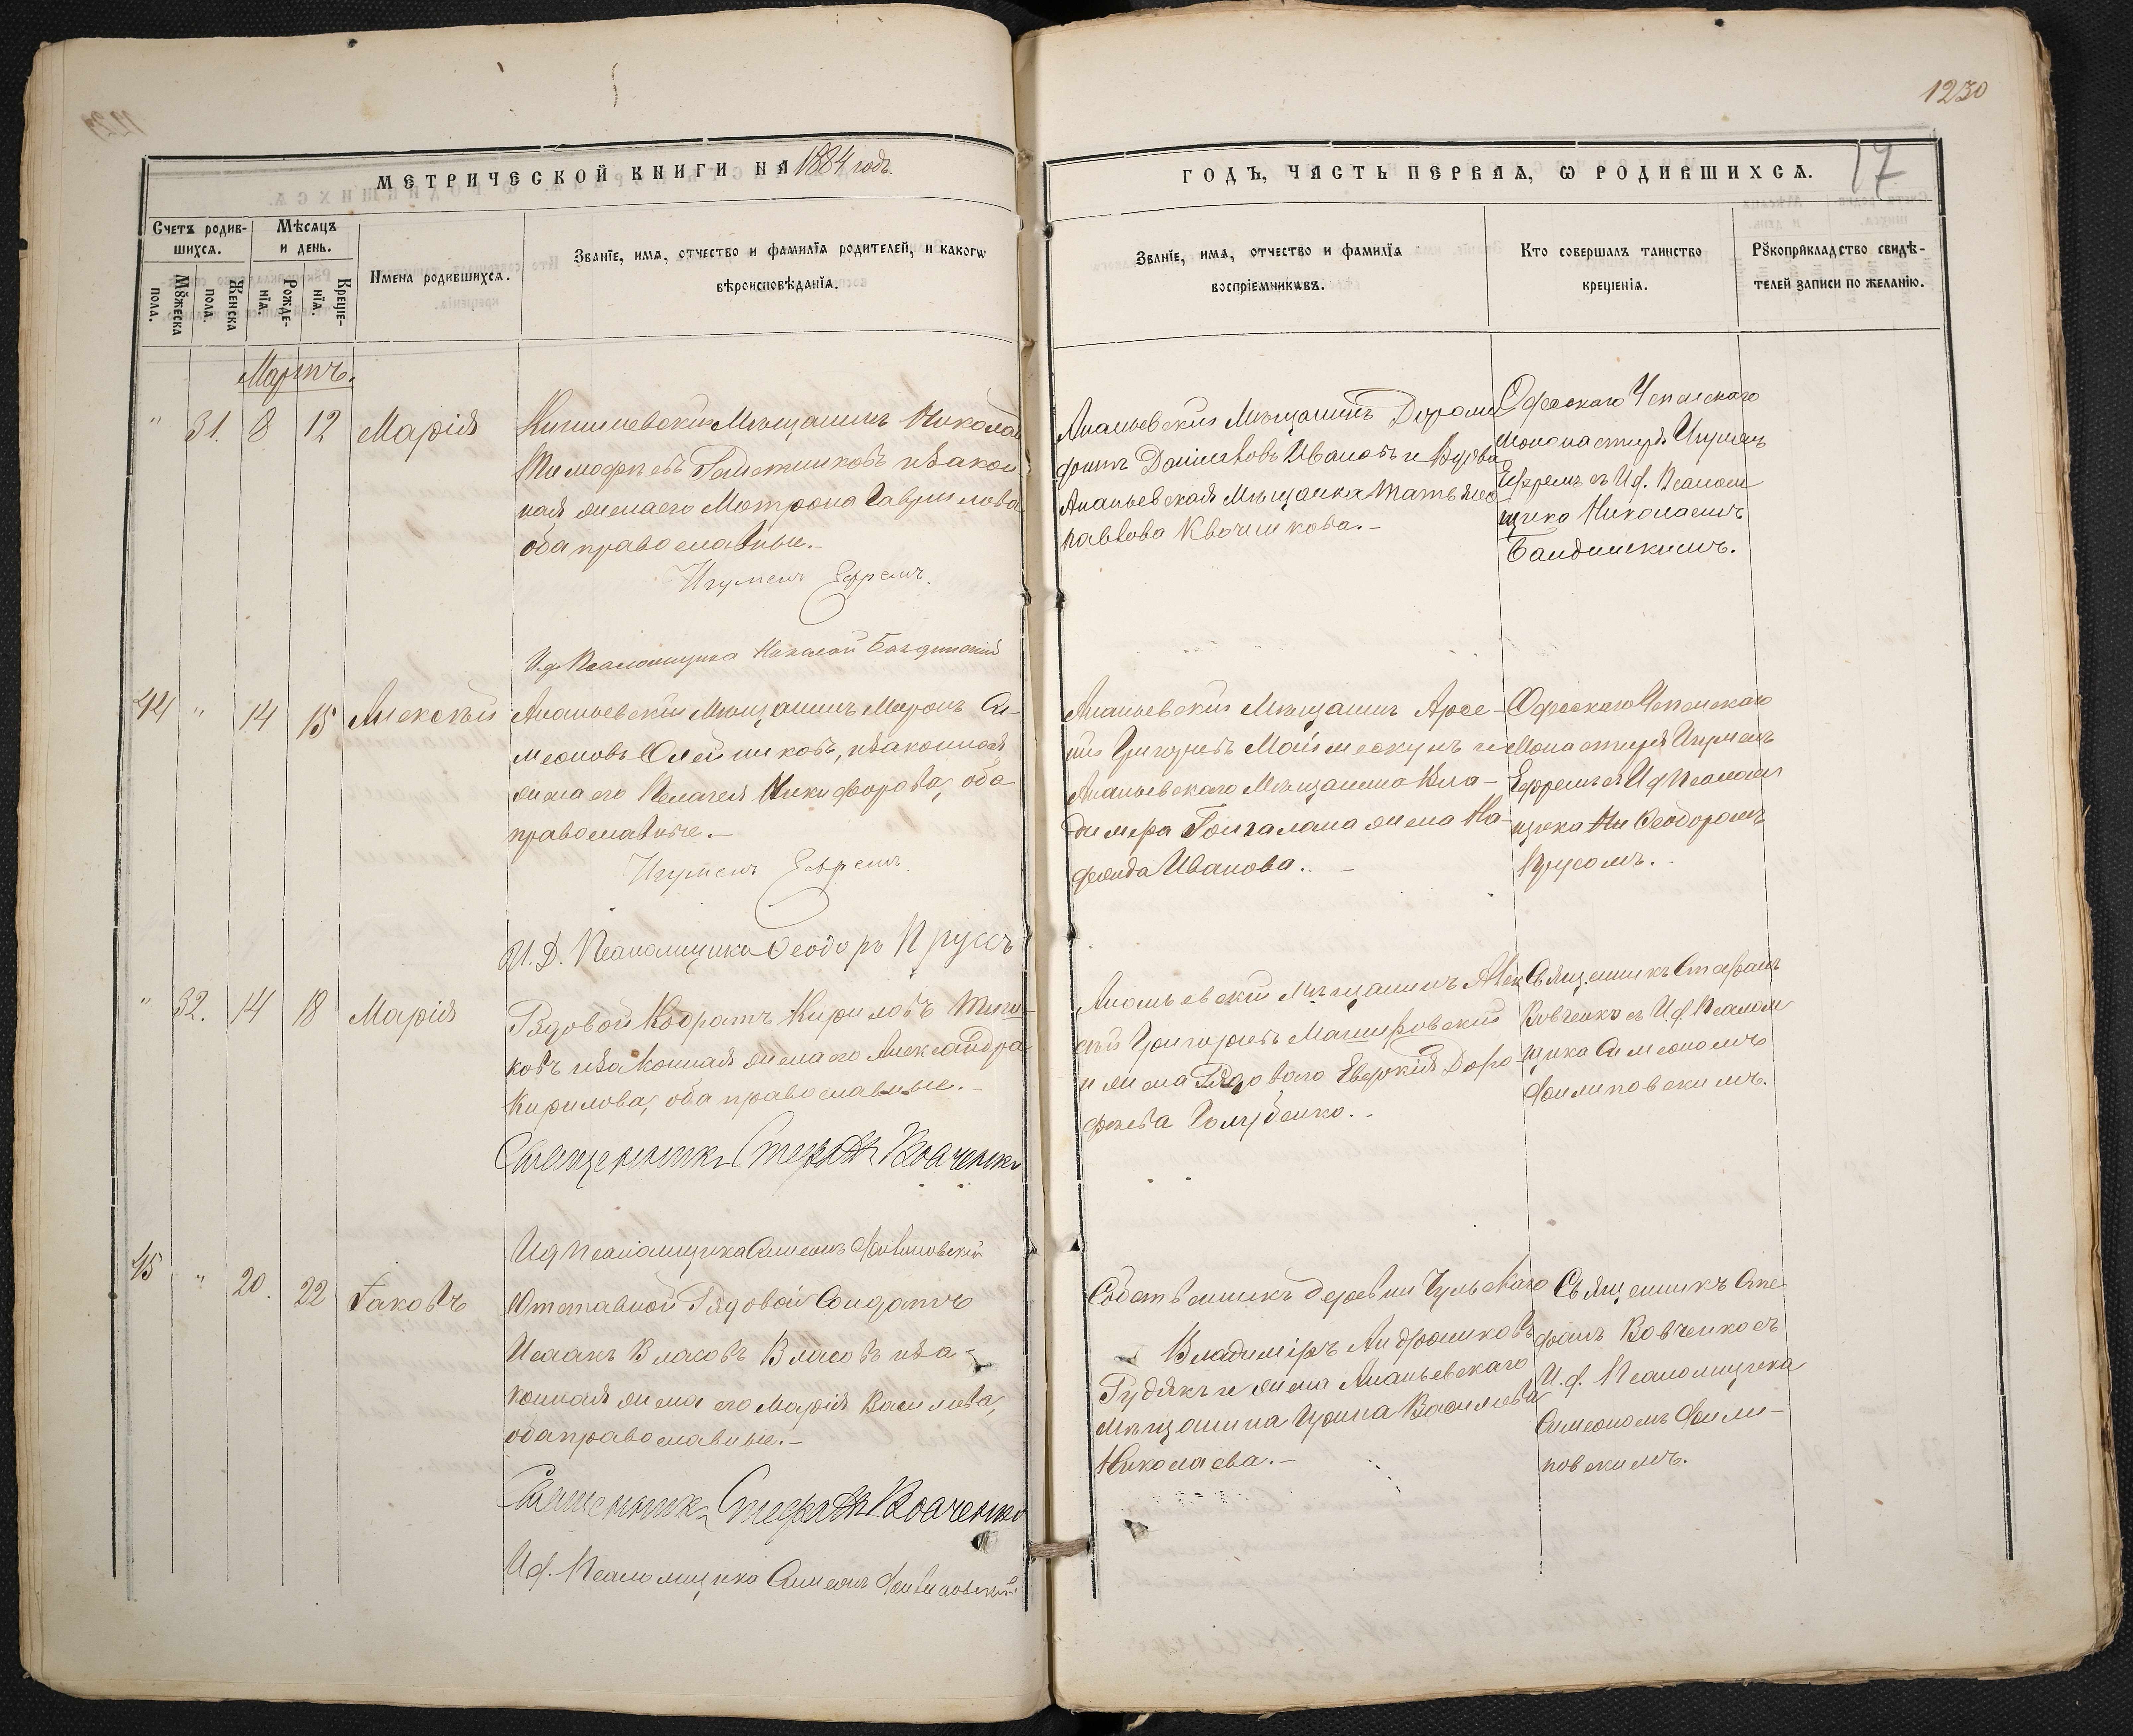 1230
МЕТРИЧЕСКОЙ КНИГИ НА 1884 годъ.
Счетъ родив-
шихсѧ.
Мѣсѧцъ
и день.
Мꙋжеска
пола.
Женска
пола.
Рожде-
нїѧ.
Креще-
нїѧ.
Имена родившихсѧ.
Званїе, имѧ, отчество и фамилїѧ родителей, и какогѡ
вѣроисповѣданїѧ.
Мартъ.
" 31. 8 12 Марія
Кишиневскій Мѣщанинъ Николай
Тимофѣевъ и закон
ная жена его Матрона Гаврилова
оба православные.
Игуменъ Ефремъ.
И.д. Псаломщика Николай Бандинскій
44 " 14 15 Алексѣй
Ананьевскій Мѣщанинъ Миронъ Си-
меоновъ Олейниковъ, и законная
жена его Пелагея Никифорова, оба
православные.
Игуменъ Ефремъ.
И.Д. Псаломщика Ѳеодоръ Пруссъ
" 32. 14 18 Марія
Рядовой Кодратъ Кириловъ
ковъ и законная жена его Александра
Кирилова, оба православные.
Священникъ Стефанъ Вовченко
И.д. Псаломщика Симеонъ Филиповскій
45 " 20. 22 Іаковъ
Отставной Рядовой Солдатъ
Исаакъ Власовъ Власовъ и за-
конная жена его Марія Василева,
оба православные.
Священникъ Стефанъ Вовченко
И.д. Псаломщика Симеонъ Филиповскій
ГОДЪ, ЧАСТЬ ПЕРВАѦ, Ѡ РОДИВШИХСѦ.
17
Званїе, имѧ, отчество и фамилїѧ
воспрїемникѡвъ.
Кто совершалъ таинство
крещенїѧ.
Рꙋкоприкладство свидѣ-
телей записи по желанїю.
Ананьевскій Мѣщанинъ Доро
фонтъ Даниловъ Ивановъ и Вдова
Ананьевская Мѣщанка Татьяна
Павлова Квочникова.
Одесскаго Успенскаго
Монастыря Игуменъ
Ефремъ съ И.д. Псалом
щика Николаемъ
Бандинскимъ.
Ананьевскій Мѣщанинъ Арсе-
ній Григорьевъ Маймескулъ и
Ананьевскаго Мѣщанина Вла-
димера жена На-
Иванова.
Одесскаго Успенскаго
Монастыря Игуменъ
Ефремъ съ И.д. Псалом
щика Ни Ѳеодоромъ
Прусомъ.
Ананьевскій Мѣщанинъ Алек
сѣй Григорьевъ Машировскій
и жена Рядоваго Евдокія Доро
фѣева Голубенко.
Священникъ Стефанъ
Вовченко съ И.д. Псалом
щика Симеономъ
Филиповскимъ.
Собственникъ деревни
Владиміръ Андрониковъ
Рудякъ и жена Ананьевскаго
мѣщанина Ирина Василева
Николаева.
Священникъ Сте
фанъ Вовченко съ
И.д. Псаломщика
Симеономъ Фили-
повскимъ.